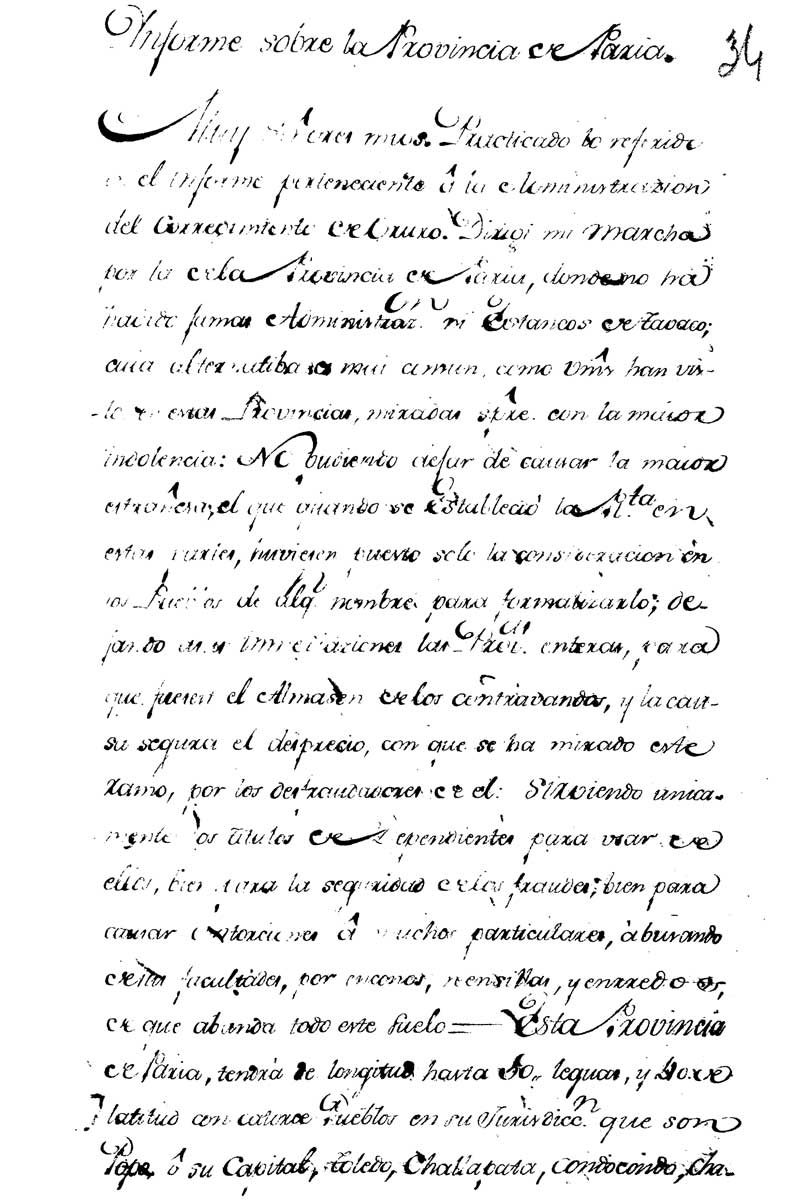 Informe sobre la Provincia de Paria.
34
Muy Señores mios. Practicado lo referido
en el informe perteneciente â la Administrazion
del Corregimiento de Oruro. Dirigi mi marcha
por la de la Provincia de Paria, donde no ha
havido jamas Administraz.on ni Estancos de Tavaco;
cuia alternatiba es mui comun, como Vm̂s han vis-
to en estas Provincias, miradas sp̂re. con la maior
indolencia: No pudiendo dejar de causar la maior
estrañesa, el que quando se Estableció la R.ta en
estas partes, huviesen puesto solo la consideracion en
los Pueblos de alg.n nombre para formalizarlo; de-
jando las Prov.as enteras, para
que fuesen el Almasen de los contravandos, y la cau-
sa segura el desprecio, con que se ha mirado este
ramo, por los defraudadores de el: Sirviendo unica-
mente los titulos de Dependientes para usar de
ellos, bien para la seguridad de los fraudes; bien para
causar extorciones â muchos particulares, abusando
de sus facultades, por enconos, rensillas, y enrredos,
de que abunda todo este suelo = Esta Provincia
de Paria, tendrà de longitud hasta 50,, leguas, y 40. de
latitud con catorce Pueblos en su Jurisdicc.n que son
Pópo, ô su Capital, Toledo, Challapata, Condocondo, Cha-